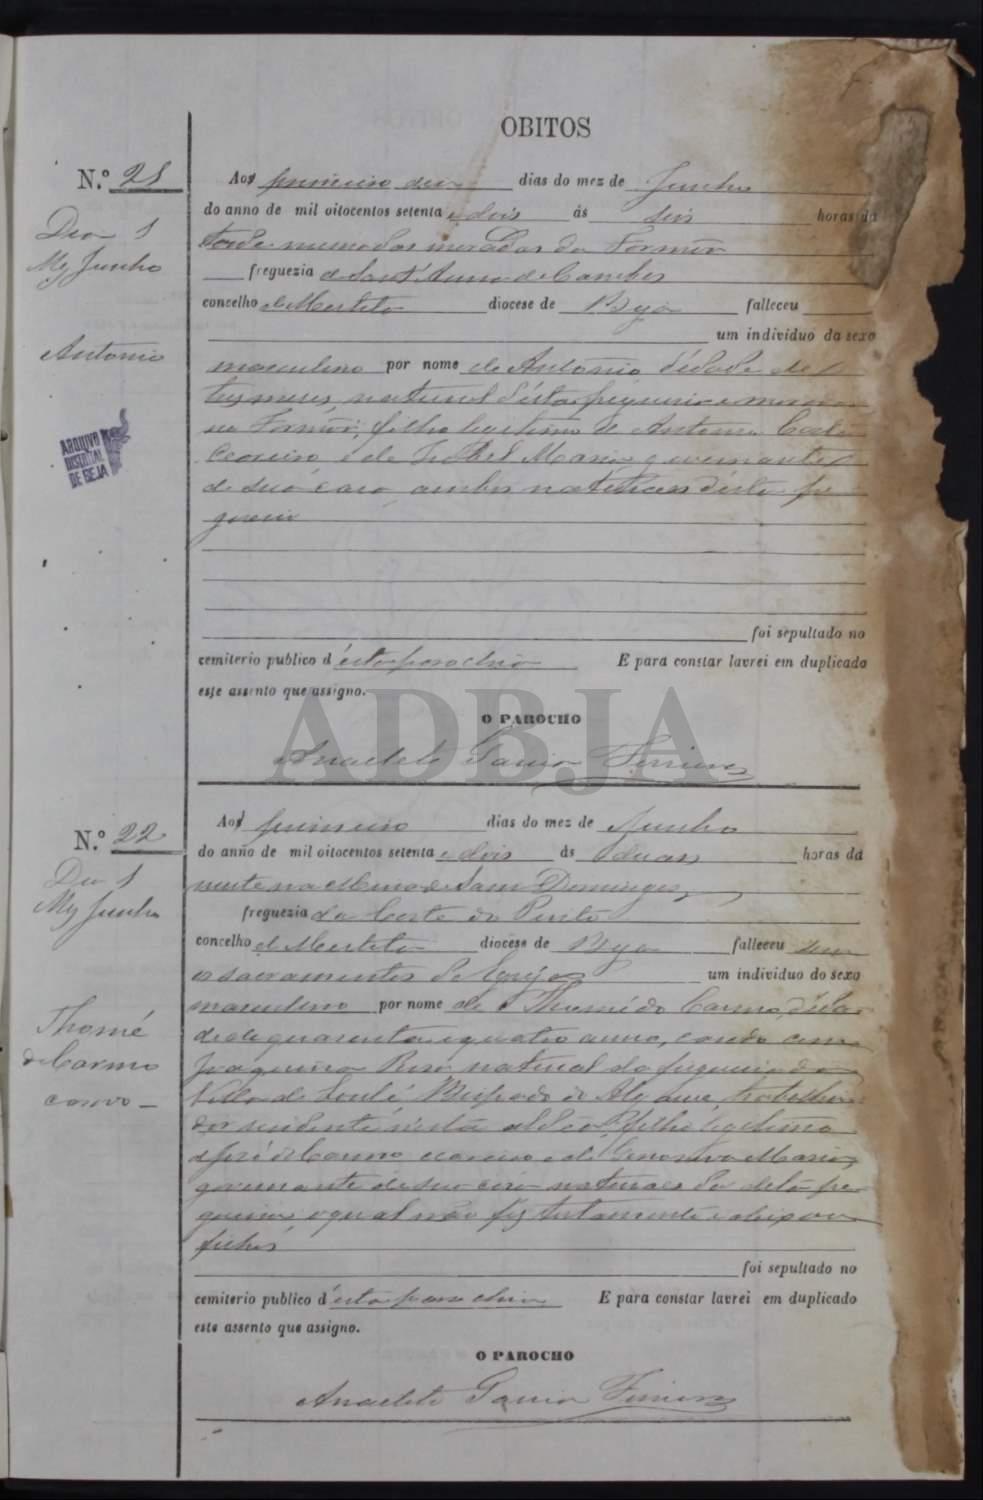 OBITOS
N.º 21
Dia 1
Mez Junho
Antonio
ARQUIVO
DISTRITAL
DE BEJA
Aos primeiro dias do mez de Junho
do anno de mil oitocentos setenta e dois ás seis horas da
tarde
freguezia de Sant'Anna de Cambas
concelho de Mertola diocese de Beja falleceu
um individuo do sexo
masculino por nome de Antonio d'idade de
tres mezes natural d'esta freguezia e morador
filho legitimo de Antonio
e de Isabel Maria governante
de sua casa ambos naturaes d'esta fre
guezia
foi sepultado no
cemiterio publico d'esta parochia E para constar lavrei em duplicado
este assento que assigno.
O PAROCHO
Anacleto Garcia Ferreira
ADBJA
N.º 22
Dia 1
Mez Junho
Thomé
do Carmo
Aos primeiro dias do mez de Junho
do anno de mil oitocentos setenta e dois ás duas horas da
noute na Mina de Sam Domingos
freguezia da Corte do Pinto
concelho de Mertola diocese de Beja falleceu sem
os sacramentos da Egreja um individuo do sexo
masculino por nome de Thomé do Carmo, d'ida
de de quarenta e quatro annos, casado com
Joaquina Rosa natural da freguezia da
Villa de Loulé Bispado do Algarve, trabalha
dor residente n'esta filho legitimo
de José do Carmo e de Maria,
governante de sua casa naturaes da dita fre
guezia o qual não fez testamento e deixou
filhos
foi sepultado no
cemiterio publico d'esta parochia E para constar lavrei em duplicado
este assento que assigno.
O PAROCHO
Anacleto Garcia Ferreira